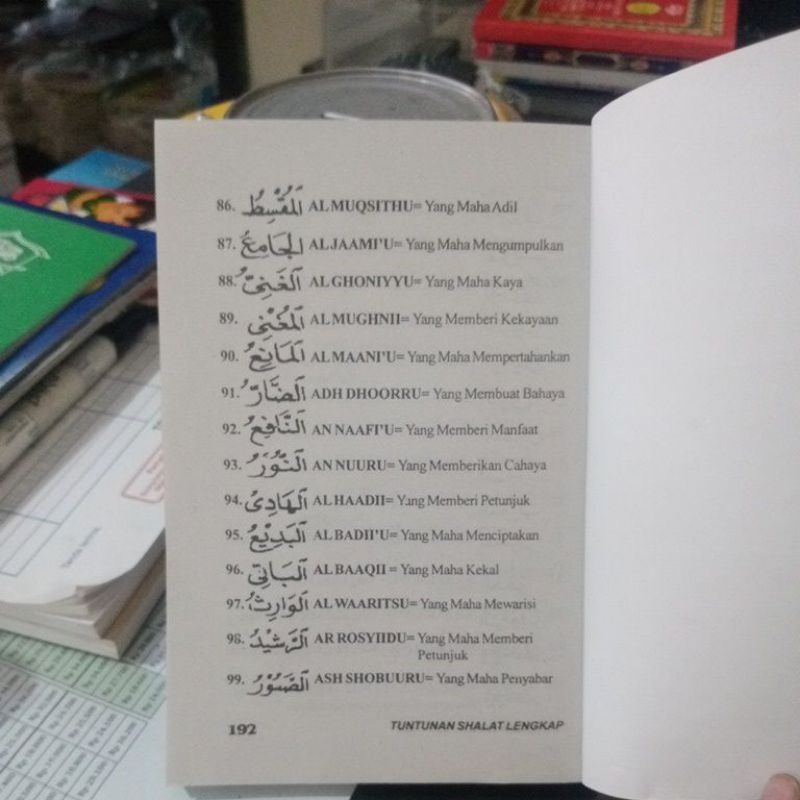 86. الْمُقْسِطُ AL MUQSITHU= Yang Maha Adil
87. الْجَامِعُ AL JAAMI'U= Yang Maha Mengumpulkan
88. الْغَنِيُّ AL GHONIYYU= Yang Maha Kaya
89. الْمُغْنِى AL MUGHNII= Yang Memberi Kekayaan
90. الْمَانِعُ AL MAANI'U= Yang Maha Mempertahankan
91. الضَّارُّ ADH DHOORRU= Yang Membuat Bahaya
92. النَّافِعُ AN NAAFI'U= Yang Memberi Manfaat
93. النُّوْرُ AN NUURU= Yang Memberikan Cahaya
94. الْهَادِىُ AL HAADII= Yang Memberi Petunjuk
95. الْبَدِيْعُ AL BADII'U= Yang Maha Menciptakan
96. الْبَاقِى AL BAAQII = Yang Maha Kekal
97. الْوَارِثُ AL WAARITSU= Yang Maha Mewarisi
98. الرَّشِيْدُ AR ROSYIIDU= Yang Maha Memberi
Petunjuk
99. الصَّبُوْرُ ASH SHOBUURU= Yang Maha Penyabar
192 TUNTUNAN SHALAT LENGKAP